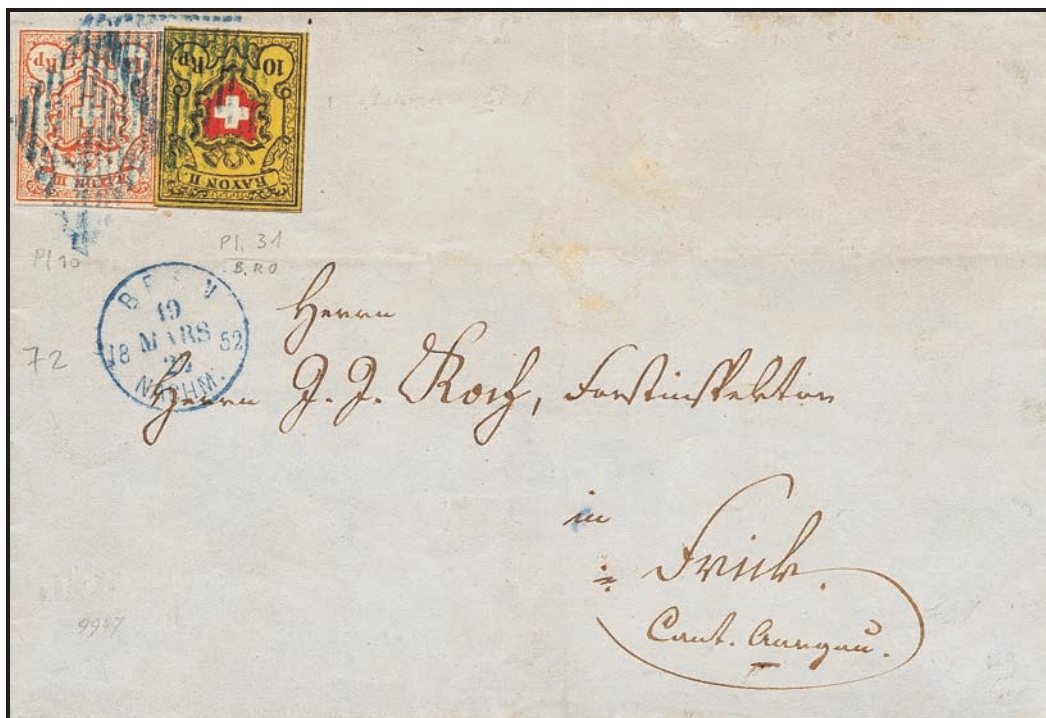 Rp
RAYON III
10 Rp.
RAYON II.
Pl 10
Pl. 31
B. RO
BERN
19
18 MARS 52
NACHM.
72
Herrn
Herrn J. J. Koch, Forstinspektor
in
Frick.
Cant. Aargau.
9947